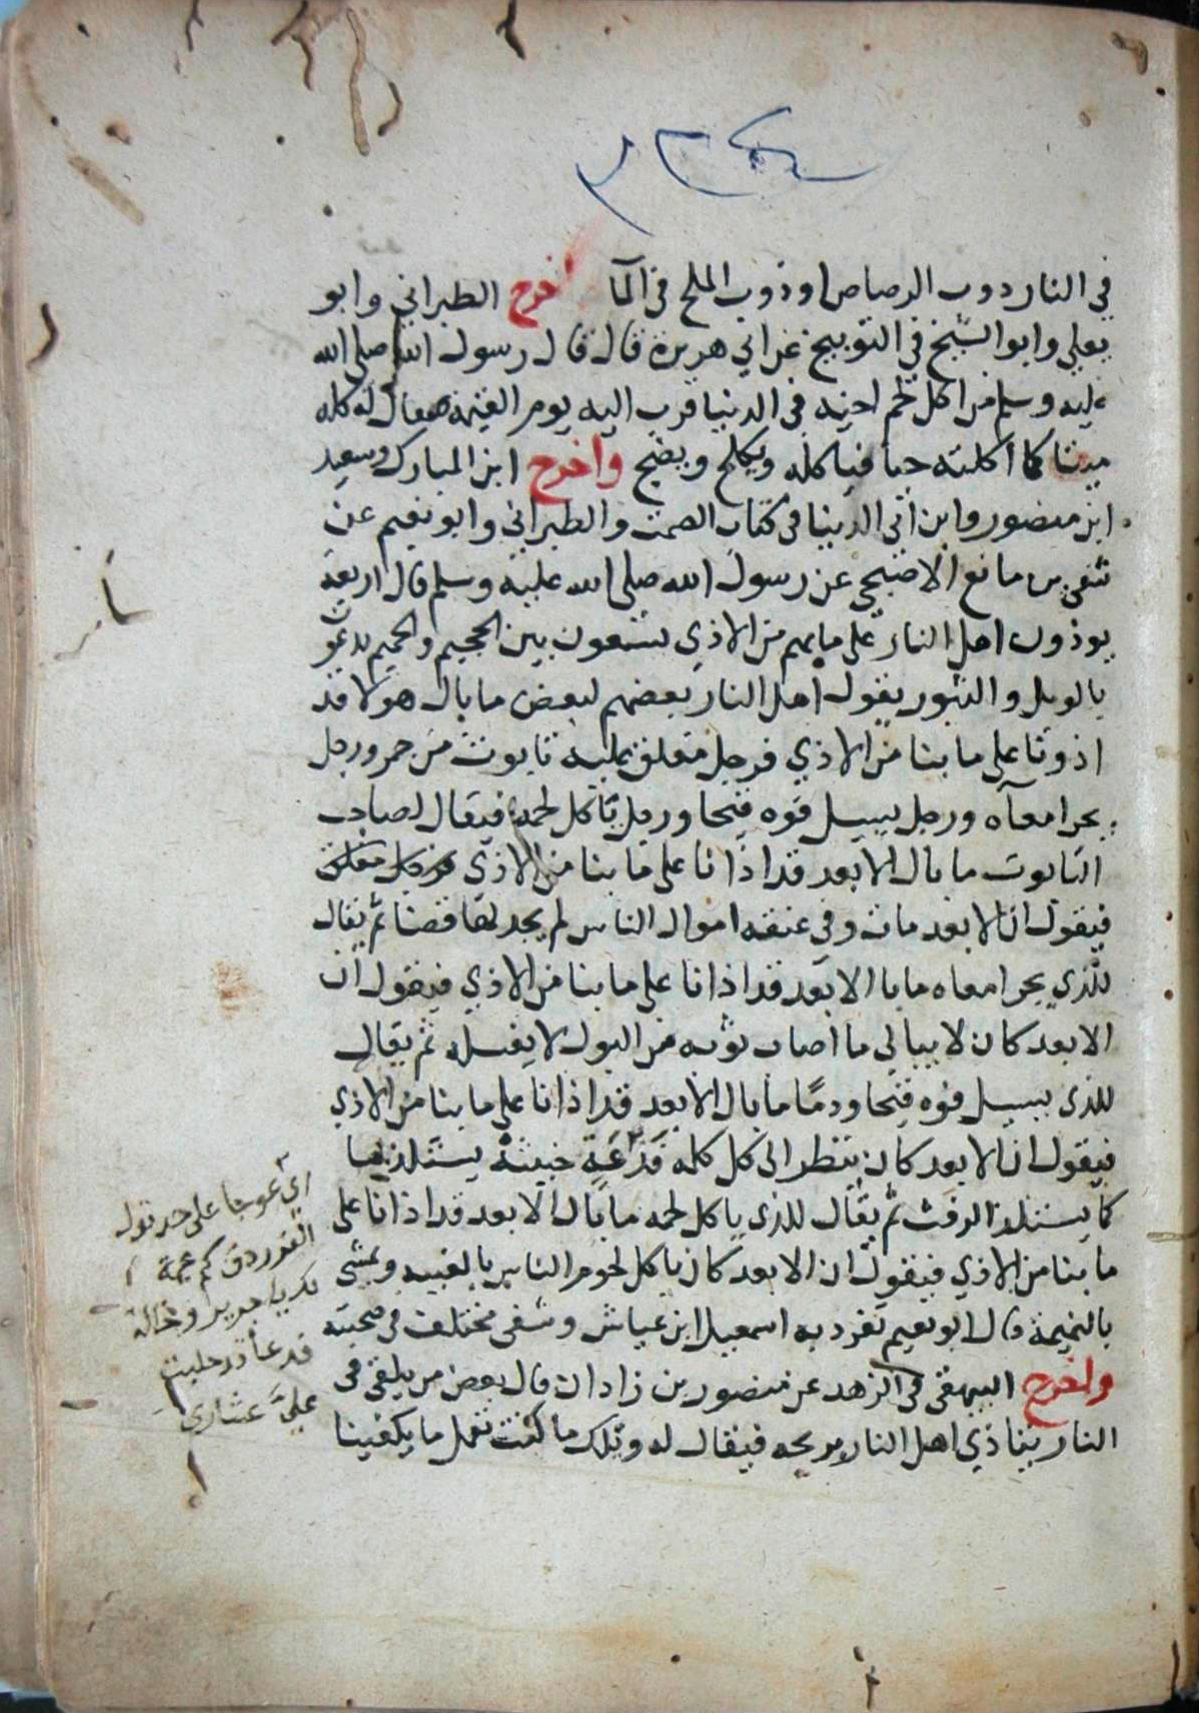 في النار ذوب الرصاص او ذوب الملح في الما اخرج الطبراني وابو
يعلي وابو الشيخ في التوبيخ عن ابي هريرة قال قال رسول الله صلى الله
عليه وسلم من اكل لحم اخيه في الدنيا قرب اليه يوم القيمة فيقال له كله
ميتا كما اكلته حيا فياكله ويكلح ويضج واخرج ابن المبارك وسعيد
ابن منصور وابن ابي الدنيا في كتاب الصمت والطبراني وابو نعيم عن
شفي بن ماتع الاصبحي عن رسول الله صلى الله عليه وسلم قال اربعة
يوذون اهل النار على ما بهم من الاذي يسعون بين الجحيم والحميم يدعون
بالويل والثبور يقول اهل النار بعضهم لبعض ما بال هولا قد
اذونا على ما بنا من الاذي فرجل مغلق عليه تابوت من جمر ورجل
يجر امعآه ورجل يسيل فوه قيحا ورجل ياكل لحمه فيقال لصاحب
التابوت ما بال الابعد قد اذانا على ما بنا من الاذي
فيقول ان الابعد مات وفي عنقه اموال الناس لم يجد لها قضا ثم يقال
للذي يجر امعاه ما با الابعد قد اذانا على ما بنا من الاذي فيقول ان
الابعد كان لا يبالي ما اصاب ثوبه من البول لا يغسله ثم يقال
للذي يسيل فوه قيحا ودمًا ما بال الابعد قد اذانا على ما بنا من الاذي
فيقول ان الابعد كان ينظر الى كل كلمه قذعة خبيثة يستلذها
كما يستلذ الرفث ثم يقال للذي ياكل لحمه ما بال الابعد قد اذانا على
ما بنا من الاذي فيقول ان الابعد كان ياكل لحوم الناس بالغيبه ويمشي
بالنميمة قال ابو نعيم تفرد به اسمعيل ابن عياش وشفي مختلف في صحبته
واخرج البيهقي في الزهد عن منصور بن زاذان قال بعض من يلقى في
النار يتاذي اهل النار بريحه فيقال له ويلك ما كنت تعمل ما يكفينا
اي عوجا على حد قول
الفرزدق كم عمة
لك يا جرير وخالة
فدعا قد حلبت
عليّ عشاري